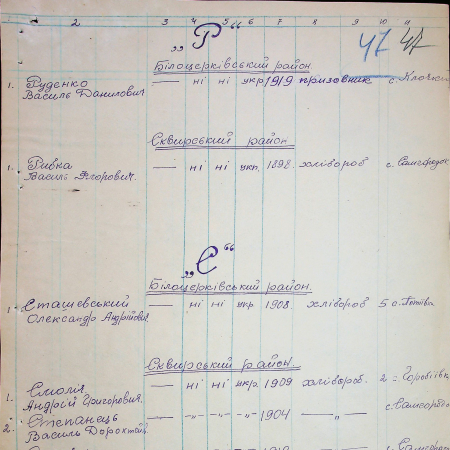 2 3 4 5 6 7 8 9 10 11
„Р“
47 47
Білоцерківський район.
1. Руденко — ні ні укр. 1919 призовник с. Клочки
Василь Данилович
Сквирський район
1. Ривка — ні ні укр. 1898. хлібороб с. Самгородок
Василь Ягорович.
„С“
Білоцерківський район.
1. Сташевський — ні ні укр. 1908. хлібороб 5 с. Потіївка
Олександр Андрійович.
Сквирський район.
1. Смолія — ні ні укр. 1909 хлібороб. 2
Андрій Григорович.
2. Степанець — -„- -„- -„- 1904 —„— с. Самгородо
Василь